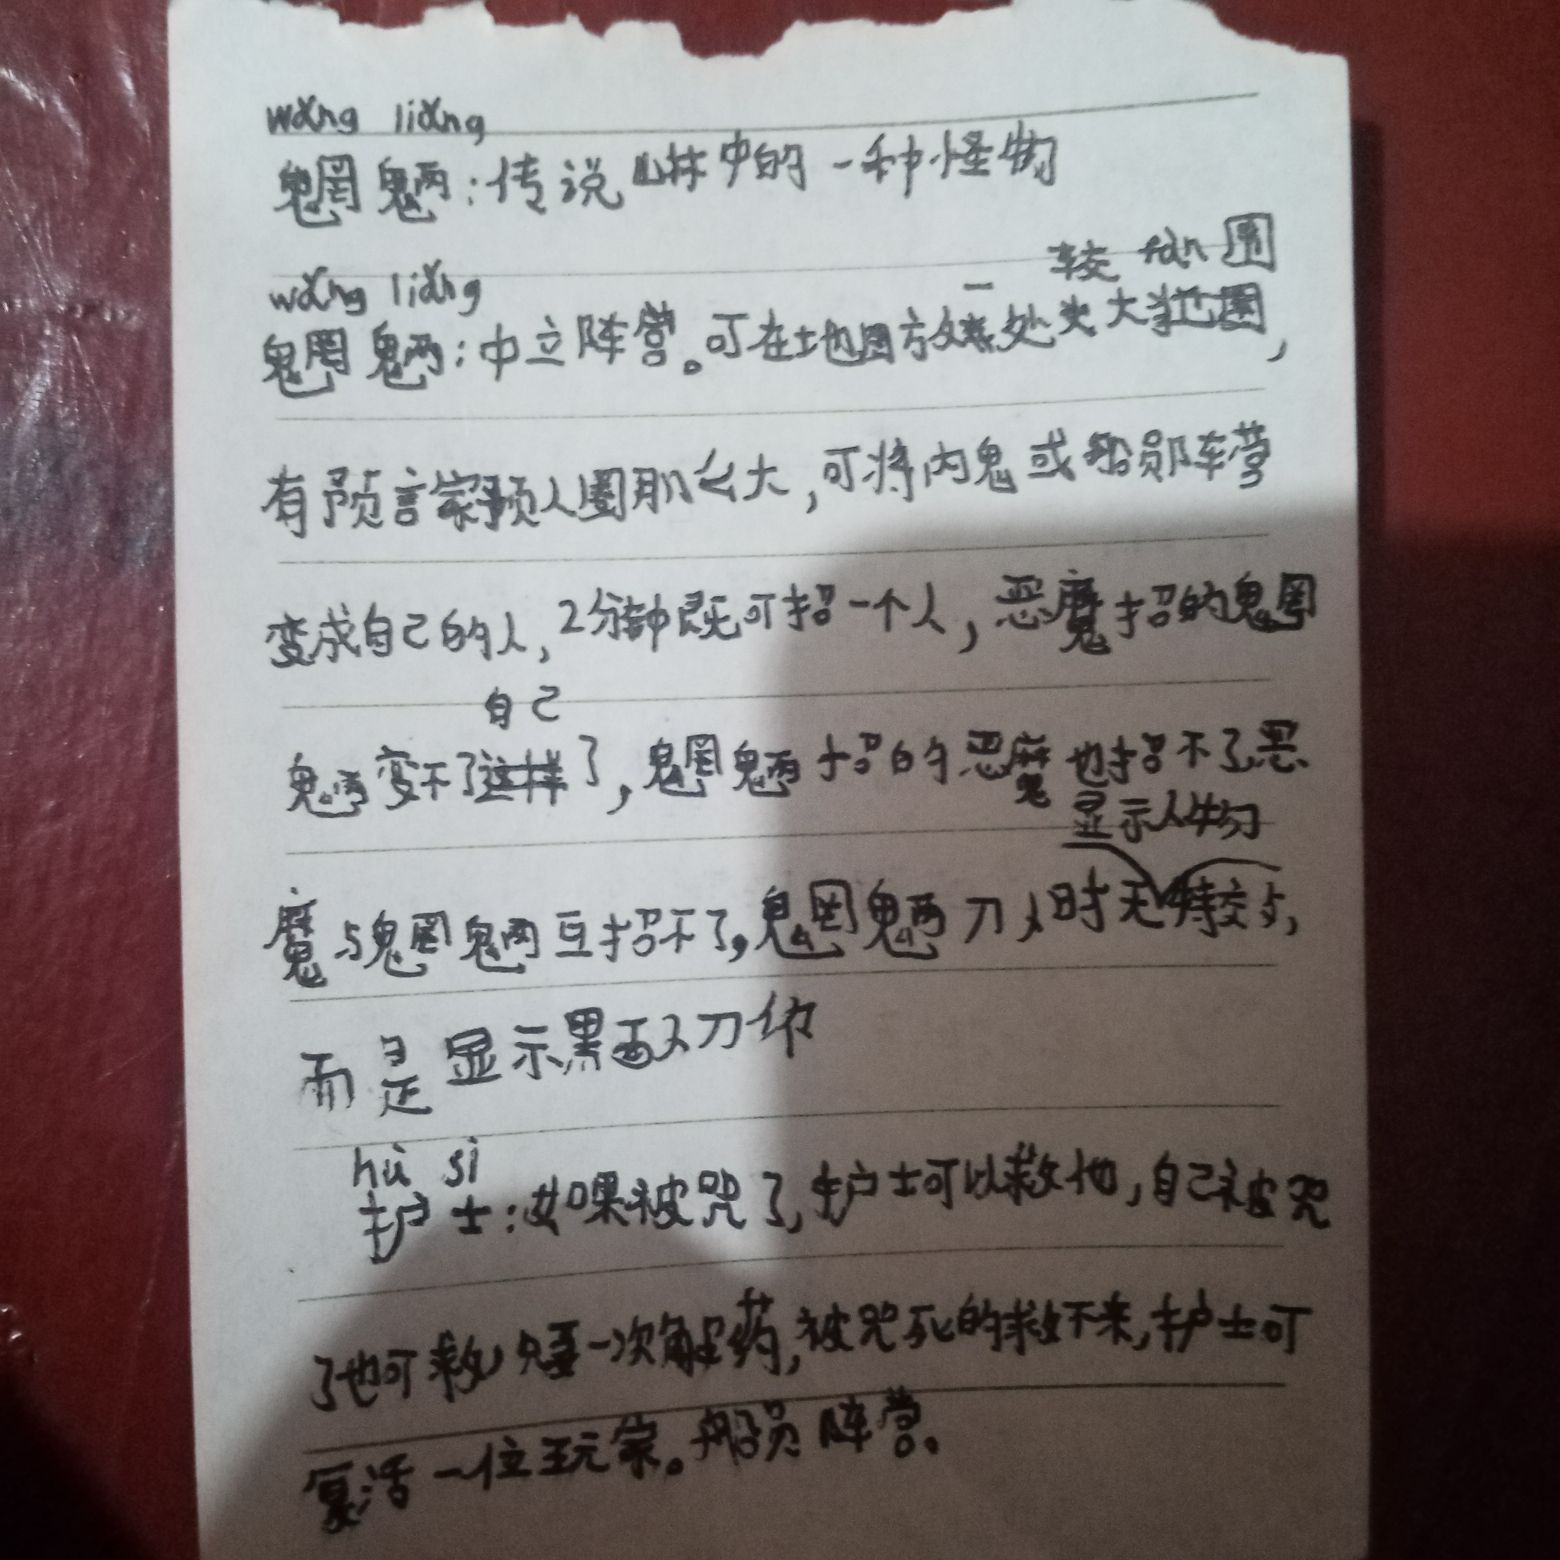 wǎng liǎng
魍魉：传说山林中的一种怪物
wǎng liǎng
一 较 fàn 围
魍魉：中立阵营。可在地图方处大地圈，
有预言家预人圈那么大，可将内鬼或船员阵营
变成自己的人，2分钟既可招一个人，恶魔招的魍
自己
魉变不了这样了，魍魉招的恶魔也招不了恶
显示人物
魔与魍魉互招不了，魍魉刀人时无特交与，
而是显示黑刀你
hù sì
护士：如果被咒了，护士可以救他，自己被咒
了也可救，只要一次解药，被咒死的救不来，护士可
复活一位玩家。船员阵营。